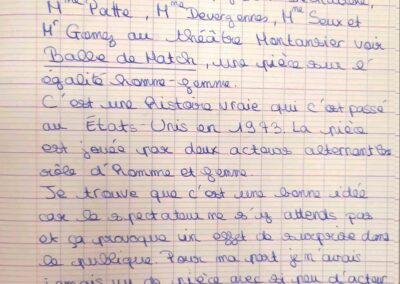 Mme Patte, Mme Devergennes, Mme Seux et
Mr Gomez au théâtre Montansier voir
Balle de Match, une pièce sur l'
égalité homme-femme.
C'est une histoire vraie qui c'est passé
au États-Unis en 1973. La pièce
est jouée par deux acteurs alternant les
rôle d'homme et femme.
Je trouve que c'est une bonne idée
car le spectateur ne s'y attends pas
et ça provoque un effet de surprise dans
le publique. Pour ma part je n'avais
jamais vu de pièce avec si peu d'acteur